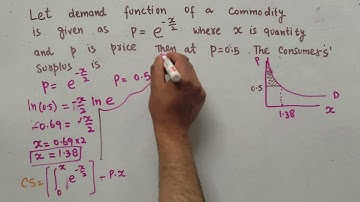 Let demand function of a commodity
is given as P = e^{-x/2} where x is quantity
and p is price Then at P=0.5. The Consumers'
Surplus is
P = e^{-x/2}
P = 0.5
ln(0.5) = -x/2 ln e
-0.69 = -x/2
x = 0.69×2
x = 1.38
CS = [∫_0^x e^{-x/2}] - P.x
P
0.5
D
1.38
x